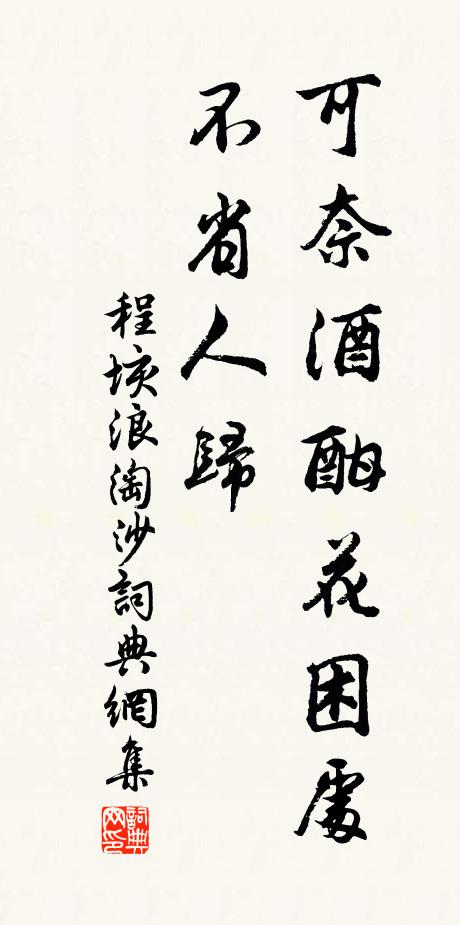 可奈酒酣花困處
不省人歸
程垓浪淘沙詞典網集
詞典网印